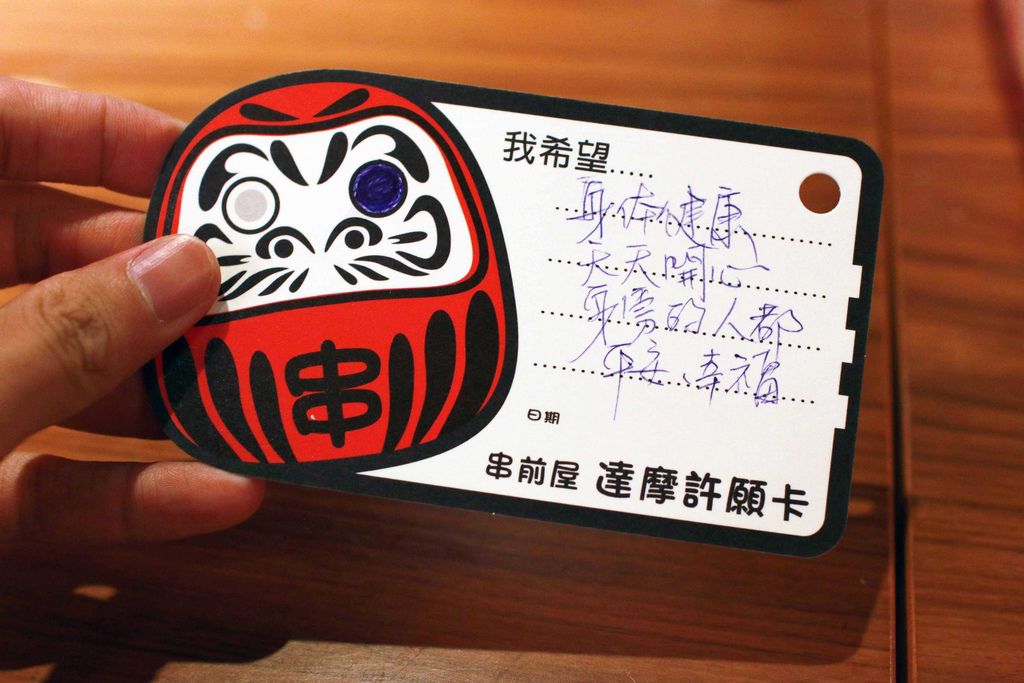 我希望.....
身体健康
天天開心
身旁的人都
平安、幸福
日期
串前屋 達摩許願卡
串